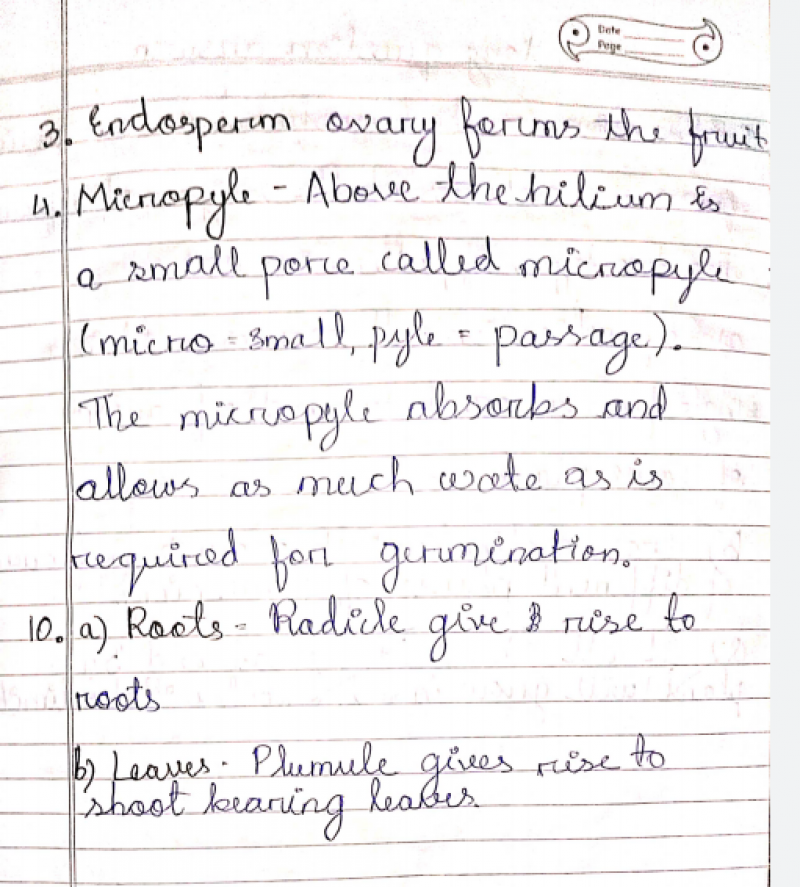 Date
Page
3. Endosperm ovary forms the fruit
4. Micropyle - Above the hilium is
a small pore called micropyle
(micro = small, pyle = passage).
The micropyle absorbs and
allows as much wate as is
required for germination.
10. a) Roots - Radicle give rise to
roots
b) Leaves - Plumule gives rise to
shoot bearing leaves.